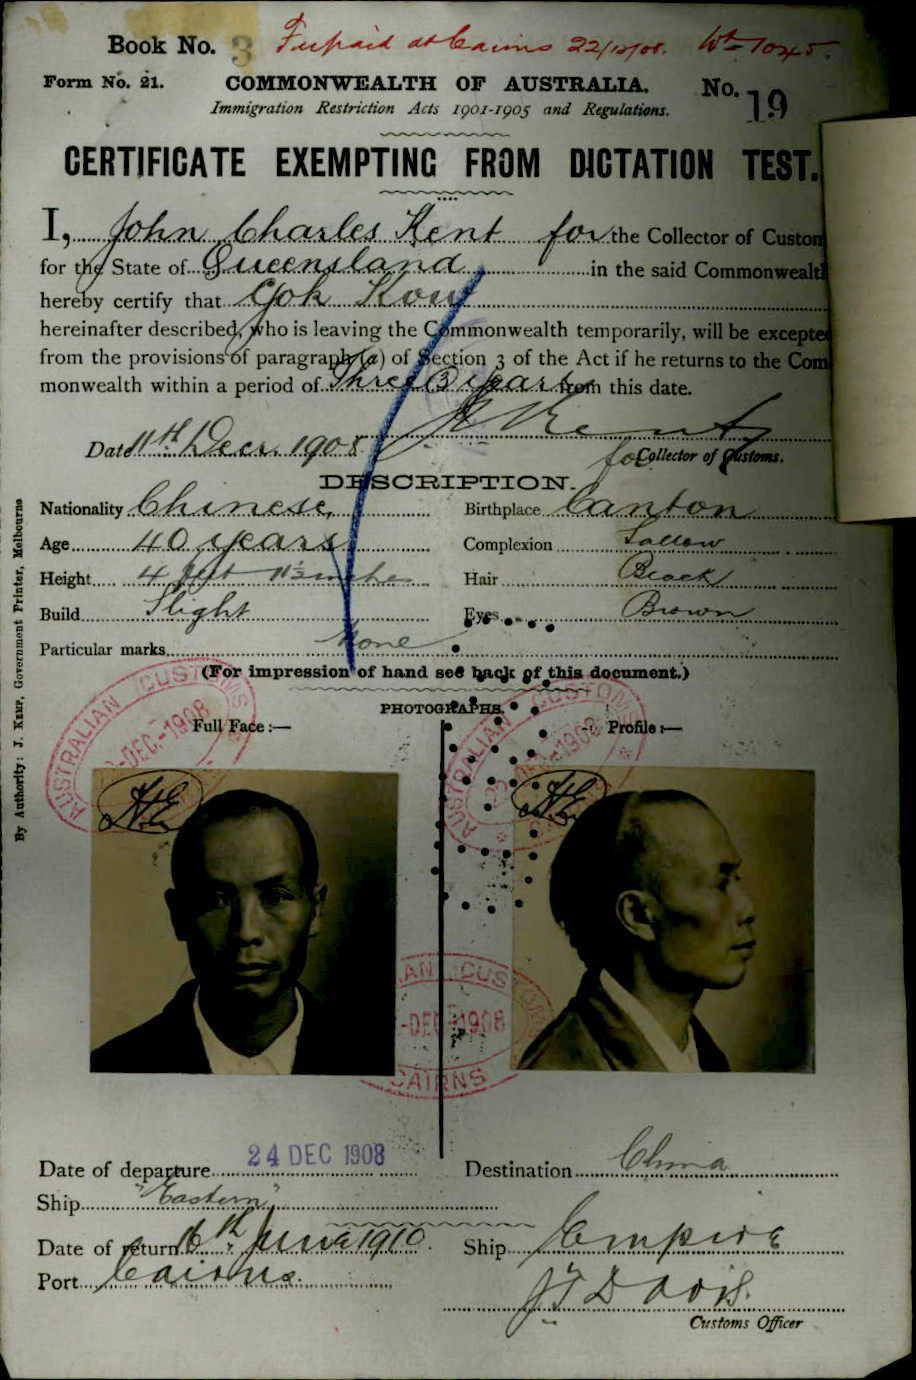 Book No. 3 at Cairns 22/12/08.
Form No. 21. COMMONWEALTH OF AUSTRALIA. No. 19
Immigration Restriction Acts 1901-1905 and Regulations.
CERTIFICATE EXEMPTING FROM DICTATION TEST.
I, John Charles Kent for the Collector of Custom
for the State of Queensland in the said Commonwealt
hereby certify that
hereinafter described, who is leaving the Commonwealth temporarily, will be excepte
from the provisions of paragraph (a) of Section 3 of the Act if he returns to the Com
monwealth within a period of Three (3) years from this date.
J C Kent
Date 11th Decr. 1908
for Collector of Customs.
DESCRIPTION.
Nationality Chinese. Birthplace Canton
Age 40 years Complexion Sallow
Height 4 feet 11½ inches Hair Black
Build Slight Eyes Brown
Particular marks None
(For impression of hand see back of this document.)
PHOTOGRAPHS.
Full Face :— Profile :—
AUSTRALIAN CUSTOMS
DEC.-1908
AUSTRALIAN CUSTOMS
DEC-1908
AN CUSTOMS
-DEC-1908
CAIRNS
Date of departure 24 DEC 1908 Destination China
Ship "Eastern"
Date of return 16th June 1910. Ship Empire
Port Cairns.
J T Davis.
Customs Officer
By Authority: J. Kemp, Government Printer, Melbourne